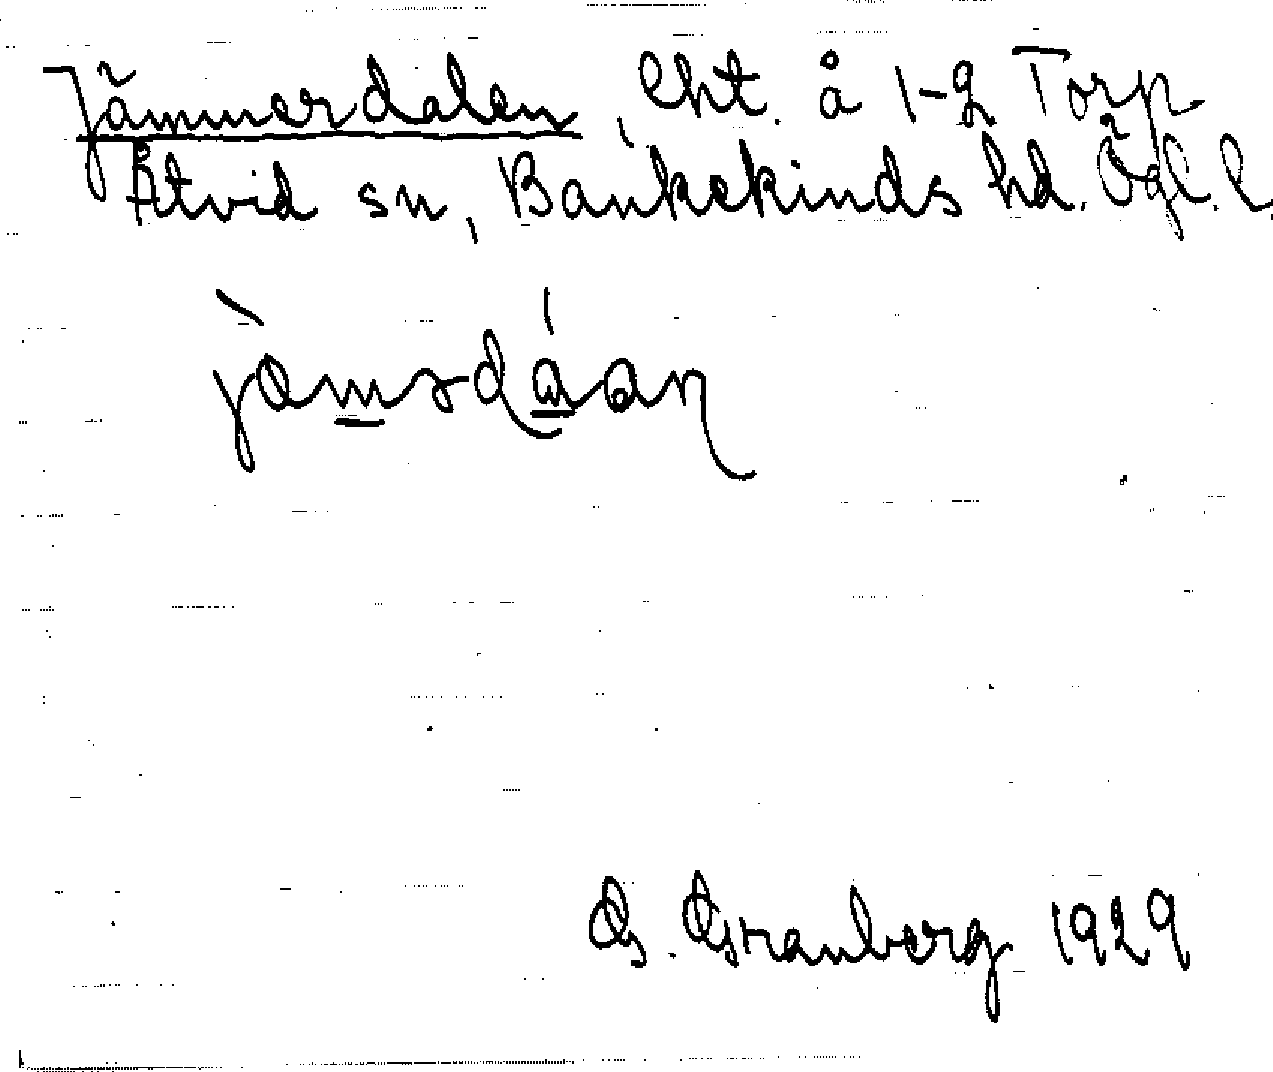 Jämmerdalen, lht. å 1-2 Torp
Åtvid sn, Bankekinds hd. Ögl. l.
G. Granberg 1929